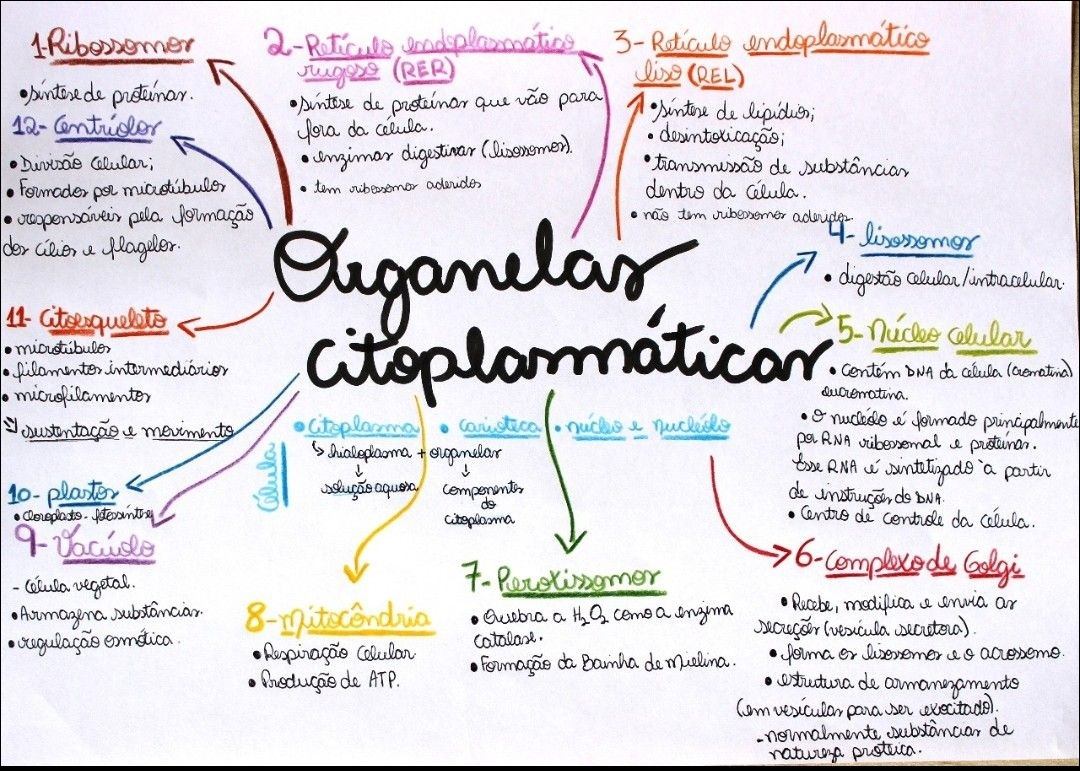 Organelas
citoplasmáticas
1-Ribossomos
• síntese de proteínas.
2- Retículo endoplasmático
rugoso (RER)
• síntese de proteínas que vão para
fora da célula.
• enzimas digestivas (lisossomos).
• tem ribossomos aderidos
3- Retículo endoplasmático
liso (REL)
• síntese de lipídios;
• desintoxicação;
• transmissão de substâncias
dentro da célula.
• não tem ribossomos aderidos.
4- lisossomos
• digestão celular/intracelular.
5- Núcleo celular
• Contém DNA da célula (cromatina)
eucromatina.
• O nucléolo é formado principalmente
por RNA ribossomal e proteínas.
Esse RNA é sintetizado a partir
de instruções do DNA.
• Centro de controle da célula.
6-Complexo de Golgi
• Recebe, modifica e envia as
secreções (vesícula secretora).
• forma os lisossomos e o acrossomo.
• estrutura de armanezamento
(em vesículas para ser exocitado).
-normalmente substâncias de
natureza proteica.
7-Peroxissomos
• Quebra a H2O2 como a enzima
catalase.
• Formação da Bainha de Mielina.
8-Mitocôndria
• Respiração Celular
• Produção de ATP.
9-Vacúolo
- Célula vegetal.
• Armazena substâncias.
• regulação osmótica.
10- plastos
• Cloroplasto - fotossíntse
11- Citoesqueleto
• microtúbulos
• filamentos intermediários
• microfilamentos
↳ sustentação e movimento
12- Centríolos
• Divisão Celular;
• Formados por microtúbulos
• responsáveis pela formação
dos cílios e flagelos.
Célula
• Citoplasma • carioteca • núcleo e nucléolo
↳ hialoplasma + organelas
↓ ↓
solução aquosa componentes
do
citoplasma